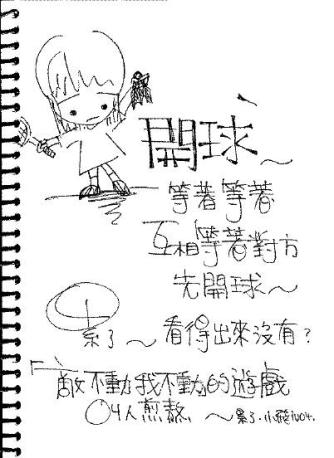 開球~
等著等著
互相等著對方
先開球~
累了~ 看得出來沒有?
敵不動我不動的遊戲
04人煎熬 ~累了.小